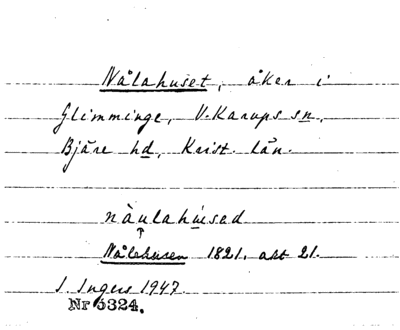 Nålahuset, åker i
Glimminge, V. Karups sn,
Bjäre hd, Krist. län.
nàulahúsed
↑
Nålehusen 1821, akt 21.
I. Ingers 1947.
Nr 5324.